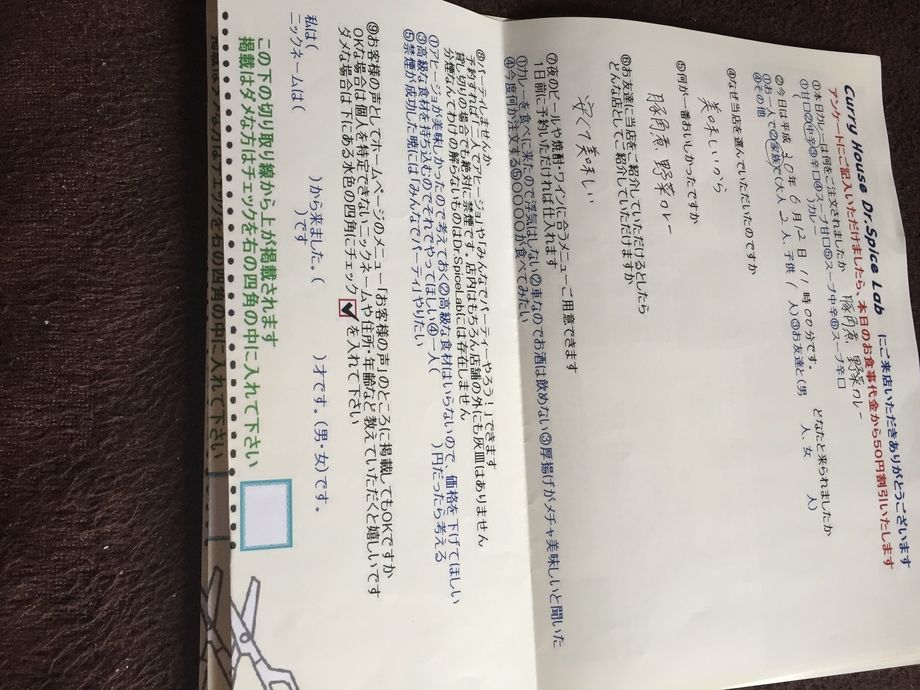 Curry House Dr.Spice Lab にご来店いただきありがとうございます
アンケートにご記入いただけましたら、本日のお食事代金から50円割引いたします
①本日カレーは何をご注文されましたか 豚角煮、野菜カレー
①甘口②中辛③辛口④スープ甘口⑤スープ中辛⑥スープ辛口
( )カレー
②今日は平成 30年 6月 12日 11時00分です。 どなたと来られましたか
①お一人で②家族で(大人 2人、子供 人)③お友達と(男 人、女 人)
④その他
④なぜ当店を選んでいただいたのですか
美味しいから
⑤何が一番おいしかったですか
豚角煮 野菜カレー
⑥お友達に当店をご紹介していただけるとしたら
どんな店としてご紹介していただけますか
安くて美味しい
⑦夜のビールや焼酎・ワインに合うメニューご用意できます
1日前に予約いただければ仕入れます
①カレーを食べに来たので浮気はしない②車なのでお酒は飲めない③厚揚げがメチャ美味しいと聞いた
④今度何か注文する⑤〇〇〇が食べてみたい
⑧パーティしませんか
予約すればミニでアヒージョや「みんなでパーティーやろう!」できます
貸し切り場合でも絶対に禁煙です。店内はもちろん店舗の外にも灰皿はありません
分煙なんてわけの解らないものはDr.SpiceLabには存在しません
①アヒージョが美味しかったので考えておく②高級な食材はいらないので、価格を下げてほしい
③高級な食材を持ち込むのでそれでやってほしい④一人( )円だったら考える
⑤禁煙が成功した暁には「みんなでパーティ」やりたい
⑨お客様の声としてホームページのメニュー「お客様の声」のところに掲載してもOKですか
OKな場合は個人を特定できないニックネームや住所・年齢など教えていただくと嬉しいです
ダメな場合は下にある水色の四角にチェック✓を入れて下さい
私は( )から来ました。( )才です。(男・女)です。
ニックネームは( )です
この下の切り取り線から上が掲載されます
掲載はダメな方はチェックを右の四角の中に入れて下さい